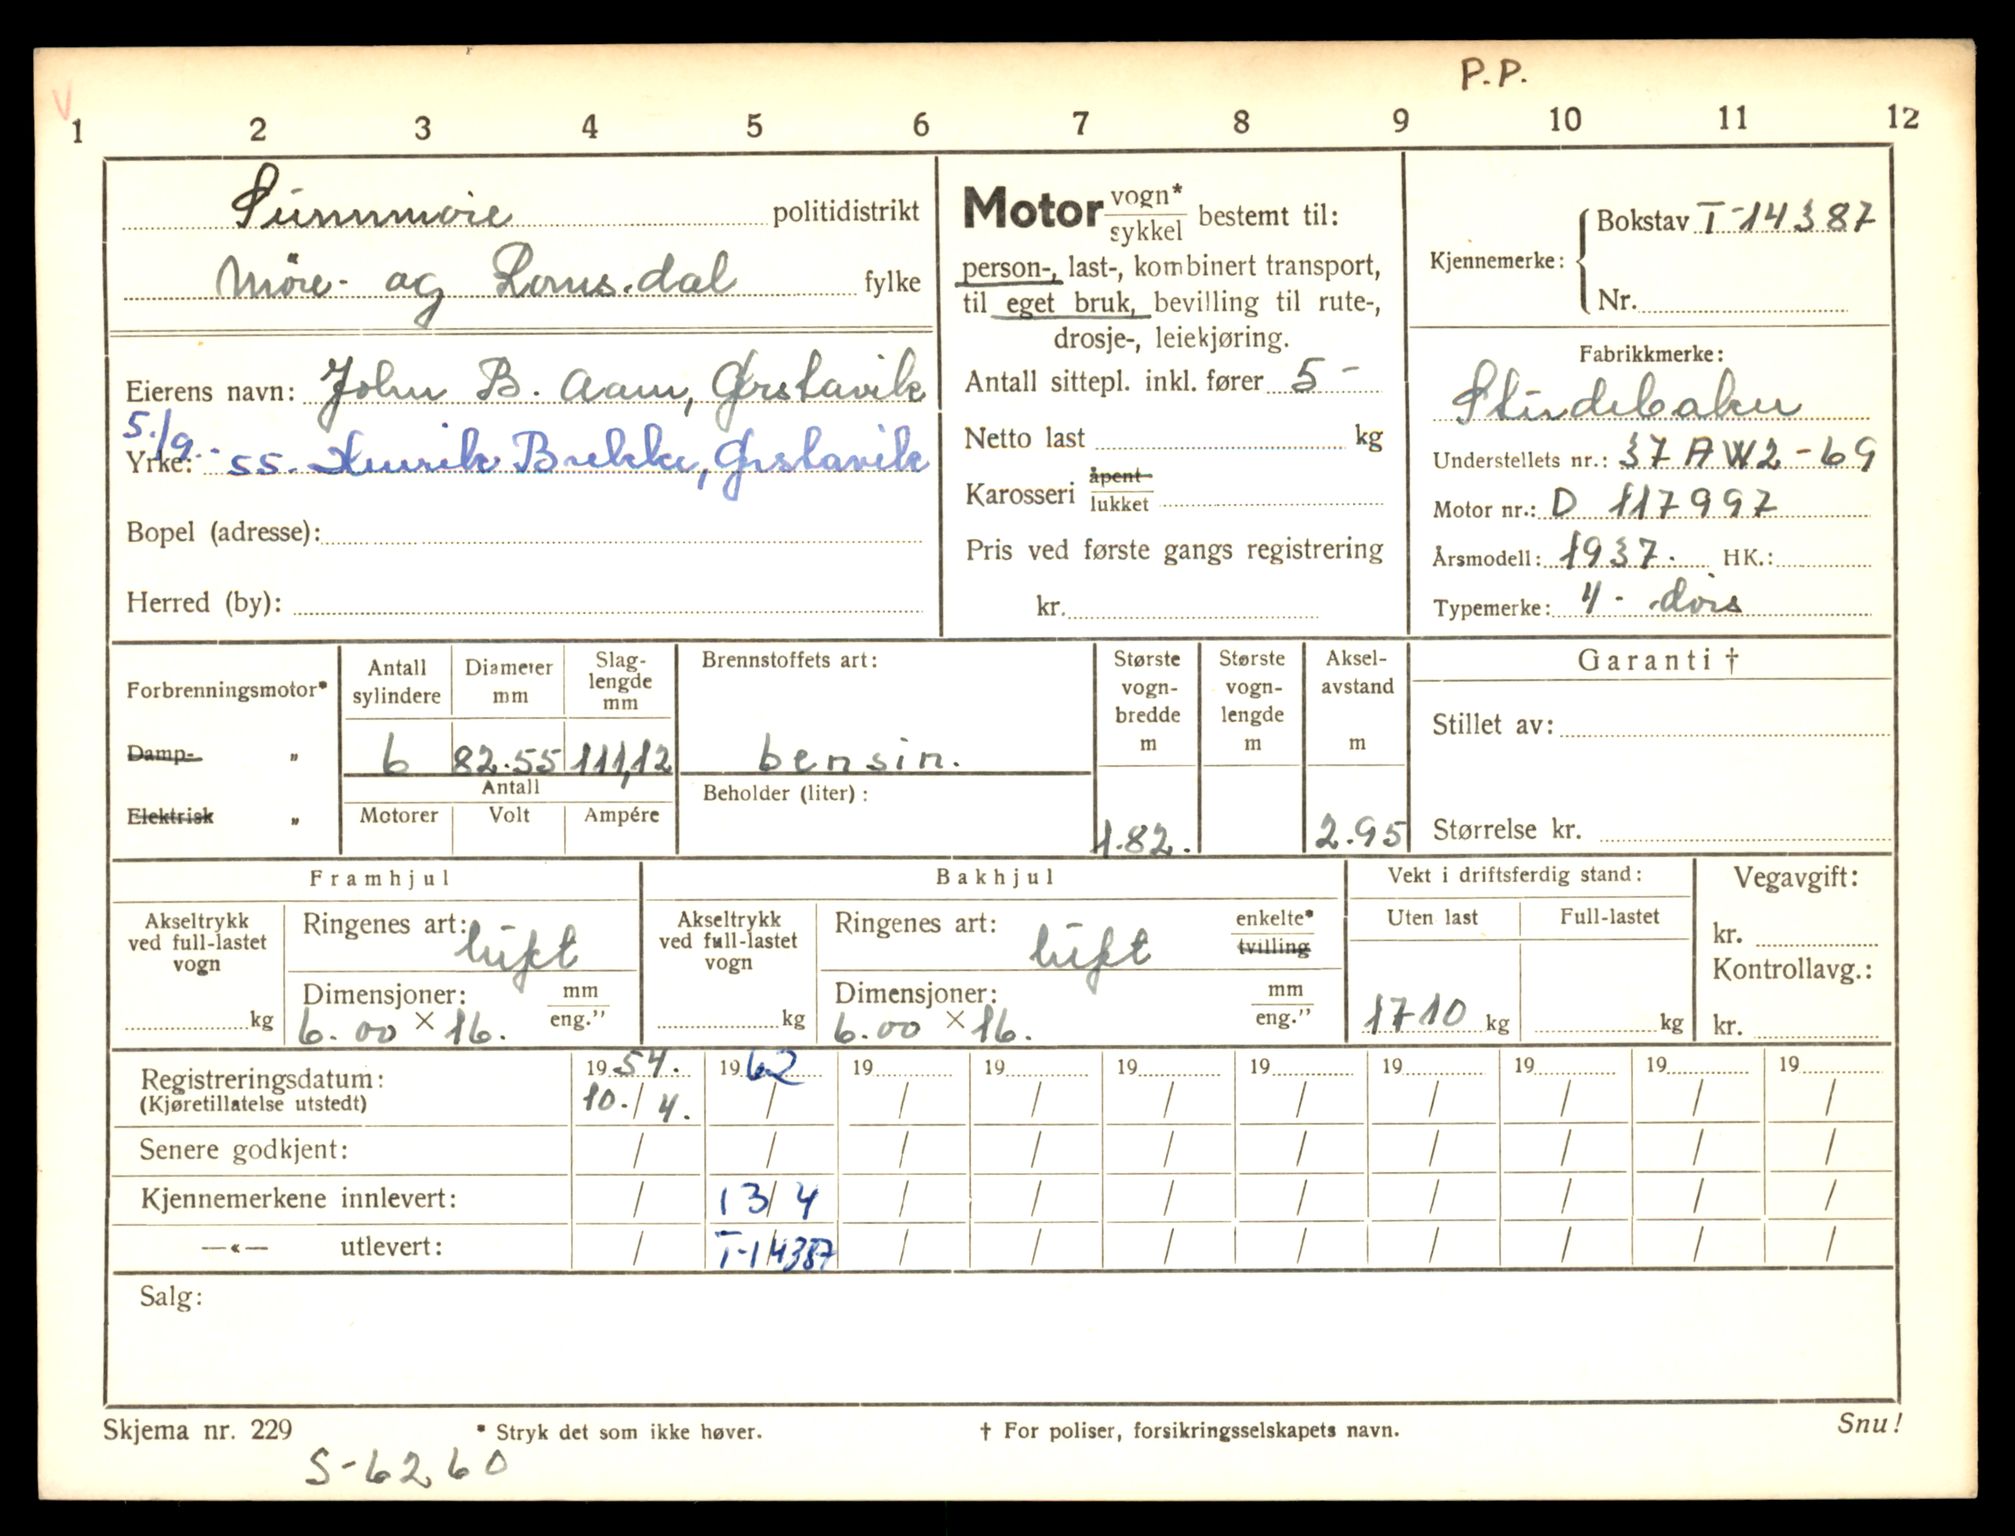 P.P.
V
1 2 3 4 5 6 7 8 9 10 11 12
Sunnmøre politidistrikt
Møre- og Romsdal fylke
Eierens navn: John B. Aam, Ørstavik
5./9.-
Yrke: 55. Henrik Brekke, Ørstavik
Bopel (adresse):
Herred (by):
Motor vogn*
sykkel bestemt til:
person-, last-, kombinert transport,
til eget bruk, bevilling til rute-,
drosje-, leiekjøring.
Antall sittepl. inkl. fører 5 -
Netto last kg
Karosseri åpent
lukket
Pris ved første gangs registrering
kr.
Kjennemerke: Bokstav T-14387
Nr.
Fabrikkmerke:
Studebaker
Understellets nr.: 37 A W2 - 69
Motor nr.: D 117997
Årsmodell: 1937. HK.:
Typemerke: 4 - dørs
Forbrenningsmotor*
Damp- "
Elektrisk "
Antall sylindere
6
Diameter mm
82.55
Slag-
lengde
mm
111,12
Antall
Motorer Volt Ampére
Brennstoffets art:
bensin.
Beholder (liter):
Største
vogn-
bredde
m
1.82.
Største
vogn-
lengde
m
Aksel-
avstand
m
2.95
Garanti †
Stillet av:
Størrelse kr.
Framhjul
Akseltrykk
ved full-lastet
vogn
kg
Ringenes art: luft
Dimensjoner: mm
eng."
6.00 × 16.
Bakhjul
Akseltrykk
ved full-lastet
vogn
kg
Ringenes art: luft
enkelte*
tvilling
Dimensjoner: mm
eng."
6.00 × 16.
Vekt i driftsferdig stand:
Uten last Full-lastet
1710 kg kg
Vegavgift:
kr.
Kontrollavg.:
kr.
Registreringsdatum: 1954. 1962 19 19 19 19 19 19 19 19
(Kjøretillatelse utstedt) 10./4. / / / / / / / / /
Senere godkjent: / / / / / / / / / /
Kjennemerkene innlevert: / 13/4 / / / / / / / /
—«— utlevert: / T-14387 / / / / / / / /
Salg:
Skjema nr. 229 * Stryk det som ikke høver. † For poliser, forsikringsselskapets navn. Snu!
S-6260